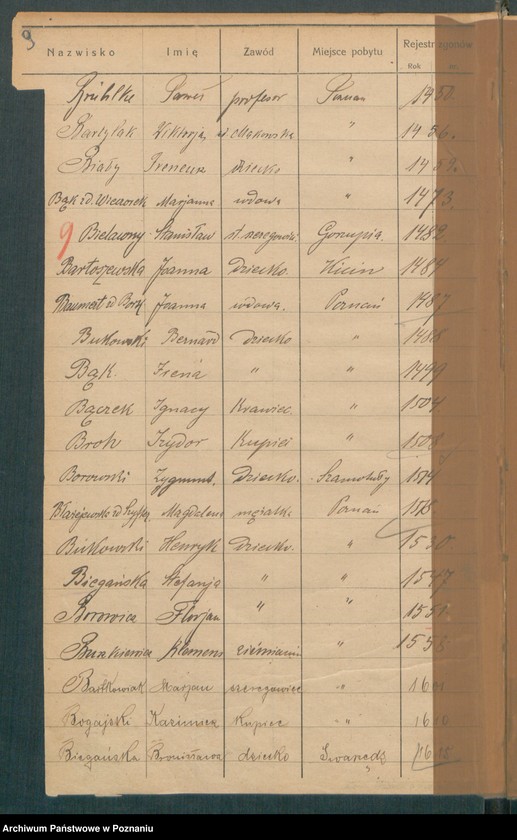 9
Nazwisko Imię Zawód Miejsce pobytu Rejestr zgonów
Rok nr.
profesor Poznań 1450
Wiktorja "
Biały Ireneusz dziecko " 1459.
Bąk zd. Wieczorek Marjanna wdowa " 1473.
9 Bielawny Stanisław st. szeregowi. 1482
Bartoszewska Joanna Dziecko. Kicin 1484
Joanna wdowa. Poznań 1487
Bukowski Bernard Dziecko " 1488
Bąk. Irena " " 1499
Bączek Ignacy Krawiec. " 1504
Broh Izydor Kupiec " 1508
Borowski Zygmunt. Dziecko. Szamotuły 1514
Magdalena mężatka Poznań 1518
Bukowski Henryk Dziecko. " 1530
Biegańska Stefanja " " 1547
Borowicz Florjan " " 1551
Klemens ziemianin " 1558
Bartkowiak Marjan szeregowiec "
Bogajski Kazimierz kupiec "
Biegańska Bronisława dziecko Swarzędz
Archiwum Państwowe w Poznaniu